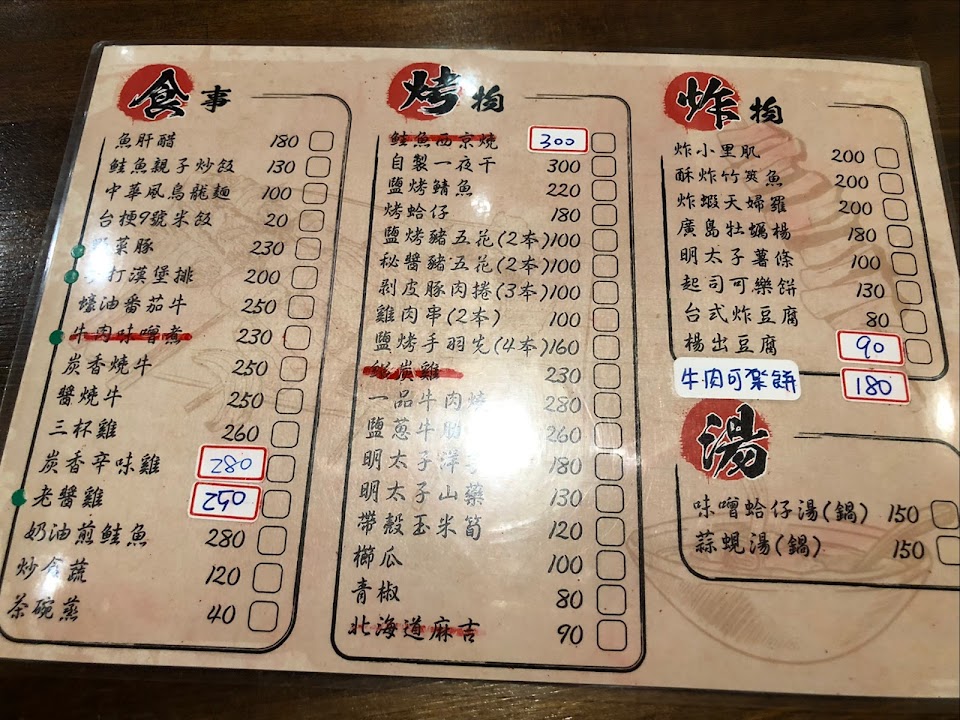 食事
魚肝醋 180
鮭魚親子炒飯 130
中華風烏龍麵 100
台梗9號米飯 20
菜豚 230
打漢堡排 200
蠔油番茄牛 250
牛肉味噌煮 230
炭香燒牛 250
醬燒牛 250
三杯雞 260
炭香辛味雞 280
老醬雞 250
奶油煎鮭魚 280
炒合蔬 120
茶碗蒸 40
烤物
鮭魚西京燒 300
自製一夜干 300
鹽烤鯖魚 220
烤蛤仔 180
鹽烤豬五花(2本) 100
秘醬豬五花(2本) 100
剝皮豚肉捲(3本) 100
雞肉串(2本) 100
鹽烤手羽先(4本) 160
炭雞 230
一品牛肉燒 280
鹽蔥牛肋 260
明太子洋 180
明太子山藥 130
帶殼玉米筍 120
櫛瓜 100
青椒 80
北海道麻吉 90
炸物
炸小里肌 200
酥炸竹筴魚 200
炸蝦天婦羅 200
廣島牡蠣楊 180
明太子薯條 100
起司可樂餅 130
台式炸豆腐 80
楊出豆腐 90
牛肉可樂餅 180
湯
味噌蛤仔湯(鍋) 150
蒜蜆湯(鍋) 150